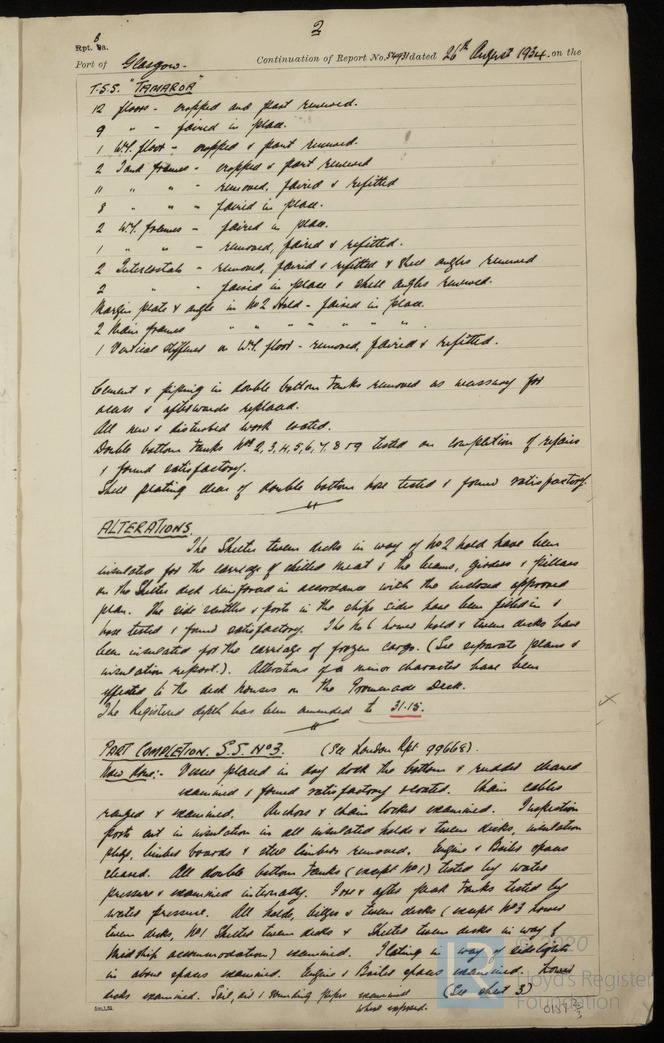 2
Rpt. 8a.
Port of Glasgow. Continuation of Report No. 54931 dated 26th August 1934. on the
T.S.S. "TAMAROA"
12 floors - cropped and part renewed.
9 " - faired in place.
1 W.T. floor - cropped & part renewed.
2 Tank frames - cropped & part renewed
11 " " - removed, faired & refitted
8 " " - faired in place.
2 W.T. frames - faired in place.
1 " " - removed, faired & refitted.
2 Intercostals - removed, faired & refitted & shell angles renewed
2 " " faired in place & shell angles renewed.
Margin plate & angle in No 2 Hold - faired in place.
2 Main frames " " " " " " "
1 Vertical stiffener on W.T. floor - removed, faired & refitted.
Cement & piping in double bottom tanks removed as necessary for
access & afterwards replaced.
All new & disturbed work coated.
Double bottom tanks Nos 2, 3, 4, 5, 6, 7, 8 & 9 tested on completion of repairs
& found satisfactory.
Shell plating clear of double bottom hose tested & found satisfactory.
ALTERATIONS.
The Shelter tween decks in way of No 2 hold have been
insulated for the carriage of chilled meat & the beams, girders & pillars
on the Shelter deck reinforced in accordance with the enclosed approved
plan. The side scuttles & ports in the ships side have been fitted in &
hose tested & found satisfactory. The No 6 lower hold & tween decks have
been insulated for the carriage of frozen cargo. (See separate plans &
insulation report.). Alterations of a minor character have been
effected to the deck houses on the Promenade Deck.
The Registered depth has been amended to 31.15.
PART COMPLETION. S.S. No 3. (See London Rpt 99668).
Now done:- Vessel placed in dry dock the bottom & rudder cleaned
examined & found satisfactory & coated. Chain cables
ranged & examined. Anchors & chain locker examined. Inspection
ports cut in insulation in all insulated holds & tween decks, insulation
plugs, limber boards & steel limbers removed. Engine & Boiler spaces
cleaned. All double bottom tanks (except No 1) tested by water
pressure & examined internally. Fore & after peak tanks tested by
water pressure. All holds, bilges & tween decks (except No 3 lower
tween deck, No 1 Shelter tween decks & Shelter tween decks in way of
Midship accommodation) examined. Plating in way of sidelights
in above spaces examined. Engine & Boiler spaces examined. Lower
decks examined. Soil, air & sounding pipes examined (See sheet 3)
where exposed.
© 2020
Lloyd's Register
Foundation